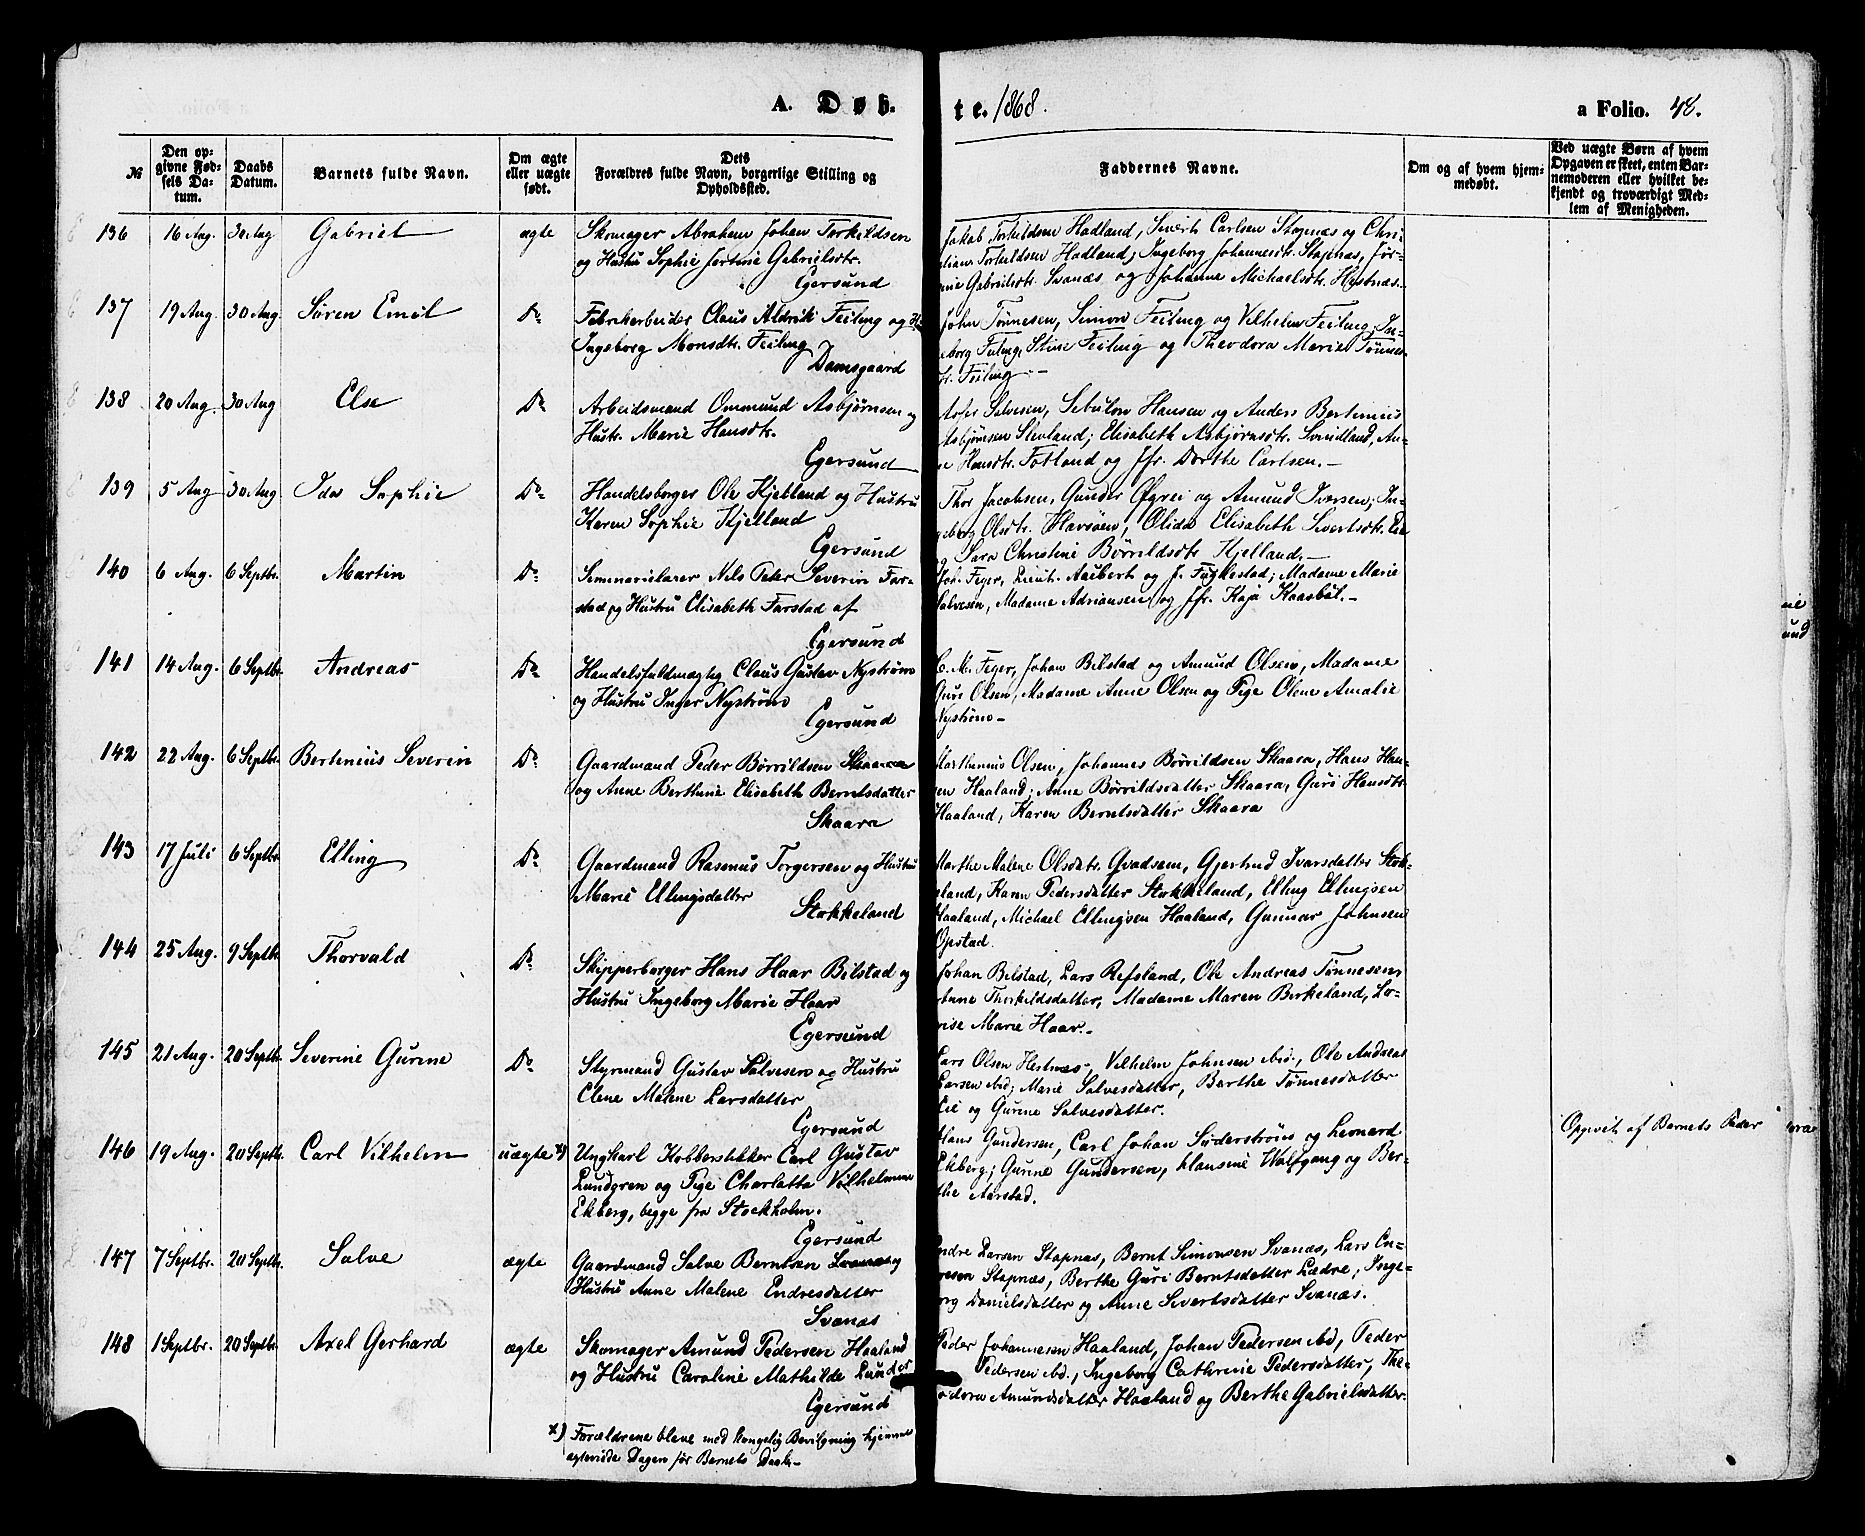 A. Døb-
te. 1868.
a Folio. 48.
№
Den op-
givne Fød-
sels Da-
tum.
Daabs
Datum.
Barnets fulde Navn.
Om ægte
eller uægte
født.
Dets
Forældres fulde Navn, borgerlige Stilling og
Opholdssted.
Faddernes Navne.
Om og af hvem hjem-
medøbt.
Ved uægte Børn af hvem
Opgaven er skeet, enten Bar-
nemoderen eller hvilket be-
kjendt og troværdigt Med-
lem af Menigheden.
136 16 Aug. 30 Aug Gabriel ægte Skomager Abraham Johan Torkildsen
og Hustru Sophie Gabrielsdtr.
Egersund
Jakob Torkildsen Hadland, Sivert Carlsen Stapnæs og Chri
stian Torkildsen Hadland; Ingeborg Johannesdtr. Stapnæs, Jør-
ine Gabrielsdtr. Svanæs og Johanne Michaelsdtr. Hestnæs.
137 19 Aug. 30 Aug. Søren Emil Do Fabrikarbeider Claus Aldrik Feiling og H.
Ingeborg Monsdtr. Feiling
Damsgaard
John Tønnesen, Simon Feiling og Vilhelm Feiling; In-
geborg Feiling, Stine Feiling og Theodora Marie Tønnes-
dtr. Feiling.-
138 20 Aug. 30 Aug Else Do Arbeidsmand Ommund Asbjørnsen og
Hustr. Marie Hansdtr.
Egersund
Salvesen, Sebulon Hansen og Anders Bertinius
Asbjørnsen Skeoland; Elisabeth Asbjørnsdtr. Svindland, An-
ne Hansdtr. Fotland og Jfr. Dorthe Carlsen.-
139 5 Aug 30 Aug. Ida Sophie Do Handelsborger Ole Kjelland og Hustru
Karen Sophie Kjelland
Egersund
Thor Jacobsen, Gunder Øgrei og Amund Iversen; In-
geborg Olsdtr. Havsøen, Olida Elisabeth Sivertsdtr. Eie
og Sara Christine Børrildsdtr Kjelland.-
140 6 Aug. 6 Septbr. Martin Do Seminarielærer Nils Peter Severin Far-
stad og Hustru Elisabeth Farstad af
Egersund
Joh. Feyer, Lieut. Aubert og J. Fuglestad; Madame Marie
Salvesen, Madame Adriansen og Jfr. Kaja Kaasbøl.-
141 14 Aug. 6 Septbr. Andreas Do Handelsfuldmægtig Claus Gustav Nystrøm
og Hustru Inger Nystrøm
Egersund
C. M. Feyer, Johan Bilstad og Amund Olsen, Madame
Guri Olsen, Madame Anne Olsen og Pige Olene Amalie
Nystrøm-
142 22 Aug. 6 Septbr. Bertinius Severin Do Gaardmand Peder Børrildsen Skaara
og Anne Berthine Elisabeth Berntsdatter
Skaara
Marthinius Olsen, Johannes Børrildsen Skaara, Hans Han-
sen Haaland; Anne Børrildsdatter Skaara, Guri Hansdtr.
Haaland, Karen Berntsdatter Skaara
143 17 Juli 6 Septbr. Elling Do Gaardmand Rasmus Torgersen og Hustru
Marie Ellingsdatter
Stokkeland
Marthe Malene Olsdatr. Qvadsem, Gjertrud Ivarsdatter Stok-
keland, Karen Pedersdatter Stokkeland, Elling Ellingsen
Haaland, Michael Ellingsen Haaland, Gunnar Johnsen
Opstad.
144 25 Aug. 9 Septbr Thorvald Do Skipperborger Hans Haar Bilstad og
Hustru Ingeborg Marie Haar
Egersund
Johan Bilstad, Lars Refsland, Ole Andreas Tønnesen,
Thorkildsdatter, Madame Maren Birkeland, Lo-
vise Marie Haar.-
145 21 Aug. 20 Septbr Severine Gurine Do Styrmand Gustav Salvesen og Hustru
Elene Malene Larsdatter
Egersund
Lars Olsen Hestnæs, Vilhelm Johnsen ibid., Ole Andreas
Larsen ibid; Marie Salvesdatter, Barthe Tønnesdatter
Eie og Gurine Salvesdatter.
146 19 Aug. 20 Septbr Carl Vilhelm uægte x) Ungkarl Kobberstikker Carl Gustav
Lundgren og Pige Charlotta Vilhelmine
Ekberg, begge fra Stockholm.
Egersund
Hans Gundersen, Carl Johan Søderstrøm og Leonard
Ekberg; Gurine Gundersen, Hansine Wolfgang og Ber-
the Aarstad.
Opgivet af Barnets Fader
147 7 Septbr. 20 Septbr. Salve ægte Gaardmand Salve Berntsen Svanæs og
Hustru Anne Malene Endresdatter
Svanæs
Endre Larsen Stapnæs, Bernt Simonsen Svanæs, Lars En-
dresen Stapnæs, Berthe Guri Berntsdatter Lædre, Inge-
borg Danielsdatter og Anne Sivertsdatter Svanæs.
148 1 Septbr. 20 Septbr Axel Gerhard ægte Skomager Amund Pedersen Haaland
og Hustru Caroline Mathilde
Egersund
Peder Johannesen Haaland, Johan Pedersen ibd, Peder
Pedersen ibd., Ingeborg Cathrine Pedersdatter, The-
odora Amundsdatter Haaland og Berthe Gabrielsdatter.
x) Forældrene bleve med kongelig Bevilgning hjemme
ægteviede Dagen før Barnets Daab.-